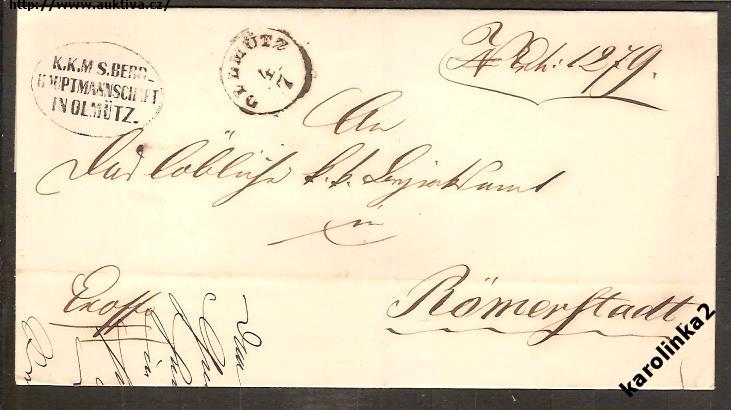 http://www.auktiva.cz/
K.K.M S.BERG
HAUPTMANNSCHAFT
IN OLMÜTZ.
OLMÜTZ
4
7
1279.
An
Das löbliche k. k. Bezirksamt
in
Römerstadt
Exoffo
karolinka2